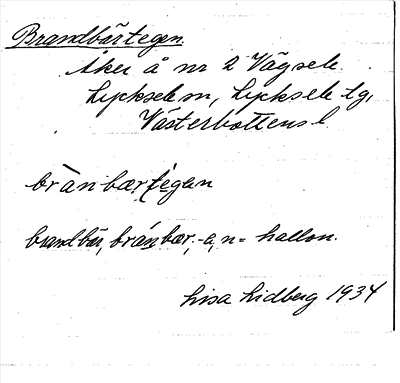 Brandbärtegen.
Åker å nr 2 Vägsele.
Lycksele sn, Lycksele tg,
Västerbottens l.
brànbær,tégan
brandbär, bránbær, -a, n = hallon.
Lisa Lidberg 1934